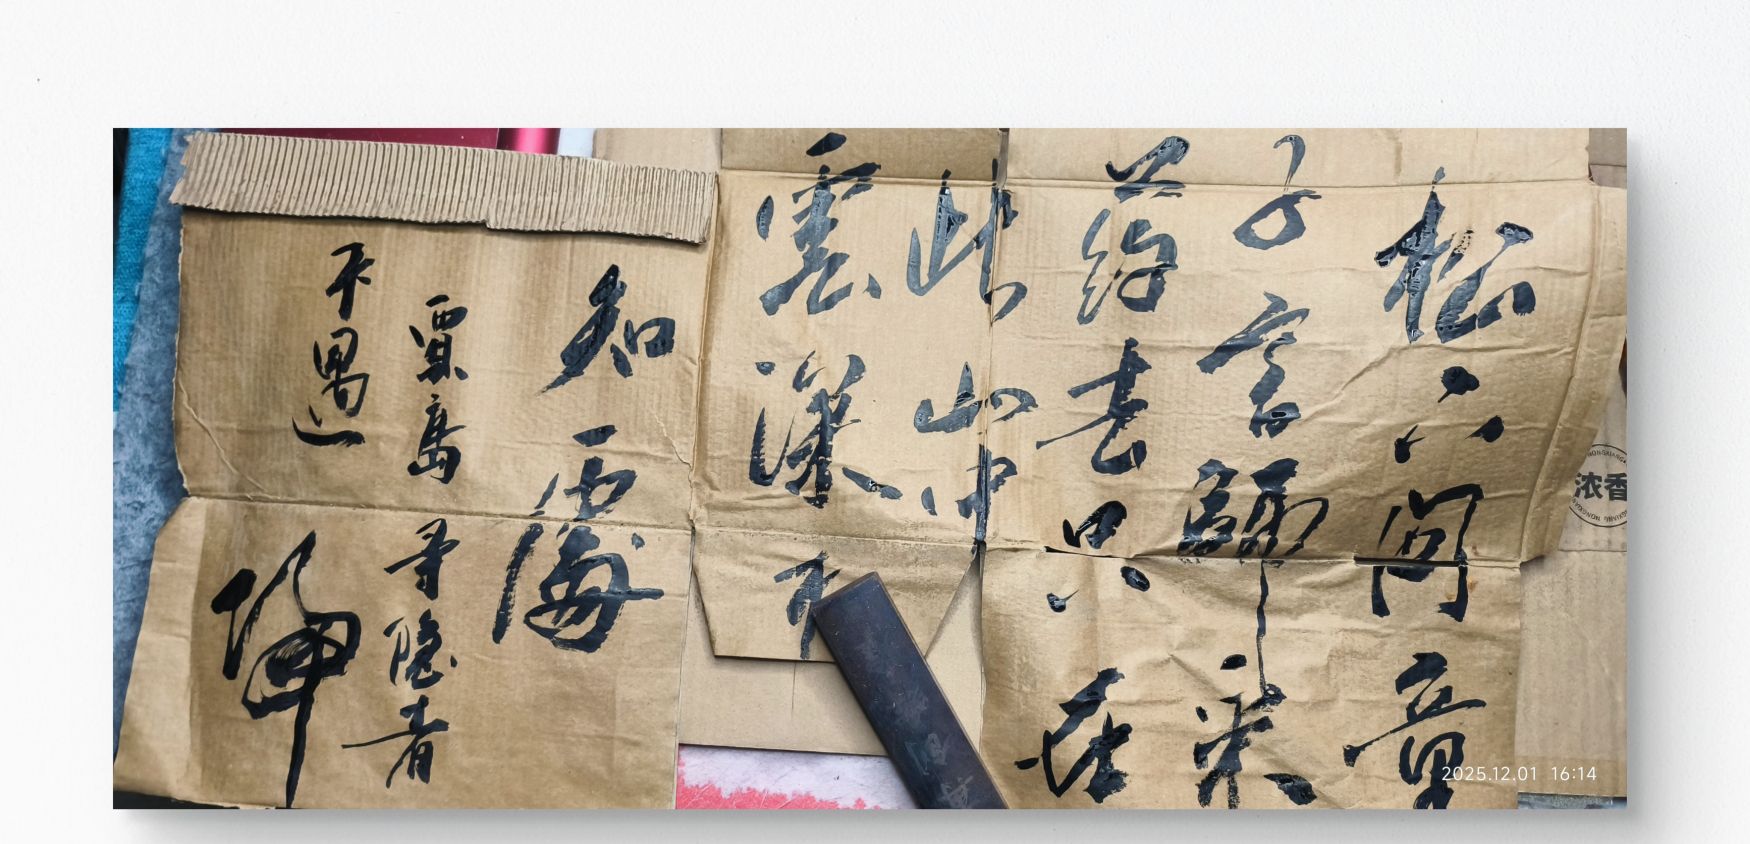 松下問童
子言師采
葯去只在
此山中
雲深不
知處
賈島寻隐者
不遇
浓香
2025.12.01 16:14